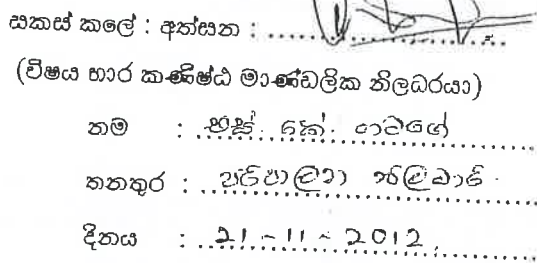 සකස් කලේ : අත්සන : ..............................
(විෂය භාර කණිෂ්ඨ මාණ්ඩලික නිලධරයා)
නම : එස්. කේ. ගටගේ
තනතුර : පරිපාලන නිලධාරි.
දිනය : 21-11-2012.